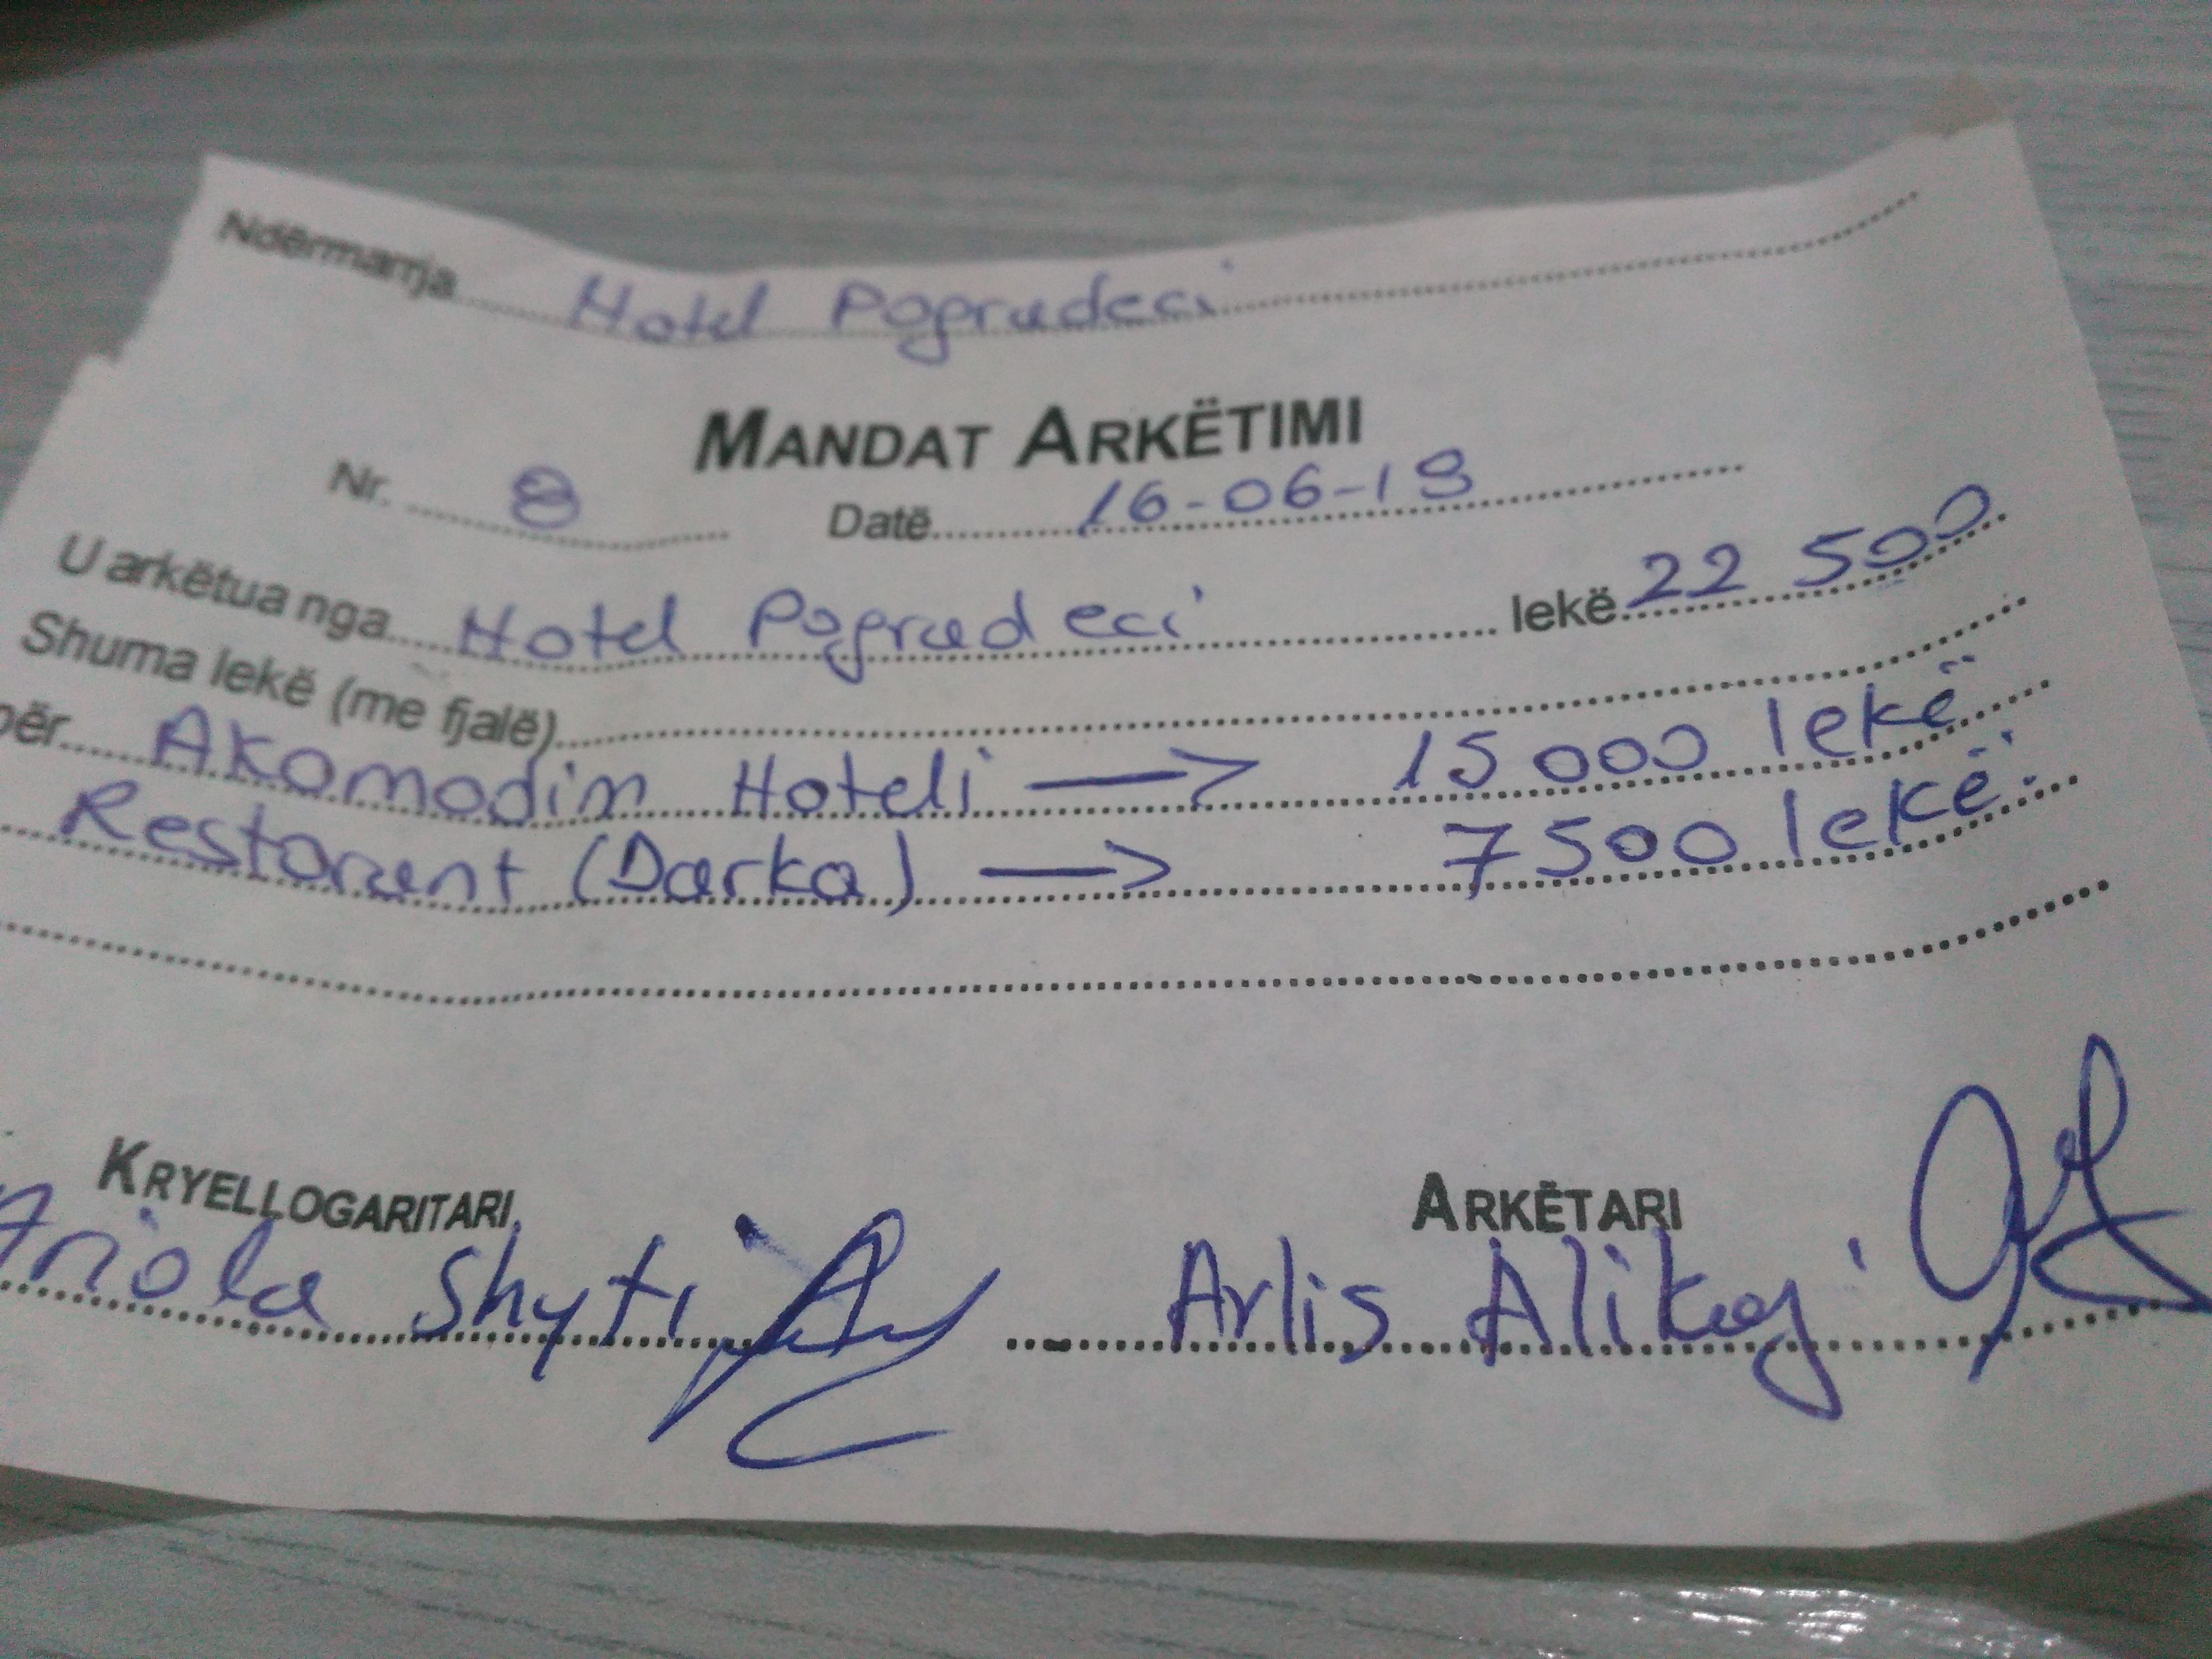 Ndërmarrja Hotel Pogradeci
MANDAT ARKËTIMI
Nr. 8 Datë 16-06-19
U arkëtua nga Hotel Pogradeci lekë 22 500
Shuma lekë (me fjalë)
për Akomodim Hoteli → 15 000 lekë
Restorant (Darka) → 7 500 lekë.
KRYELLOGARITARI ARKËTARI
Ariola Shyti Arlis Alikaj